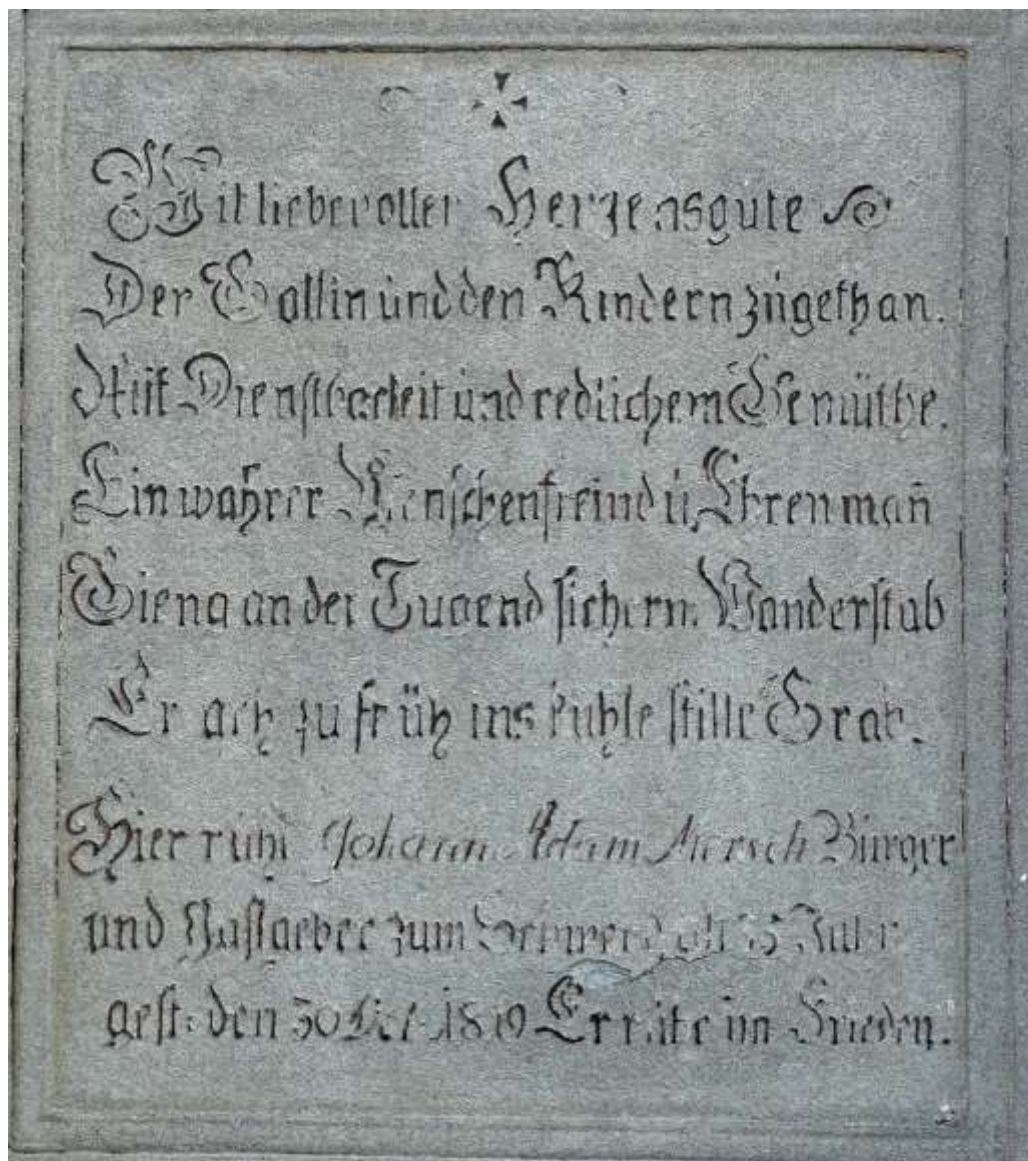 Mit liebevoller Herzensgute
Der Gattin und den Kindern zugethan.
Mit Dienstbarkeit und redlichem Gemüthe.
Ein wahrer Menschenfreind u. Ehren man̄
Gieng an der Tugend sichern Wanderstab
Er ach zu früh ins kuhle stille Grab.
Hier ruht Johann Adam Mersch Bürger
und Gastgeber zum Schwerd alt Jahr
gest: den 30 Oct 1819 Er ruhe im Frieden.